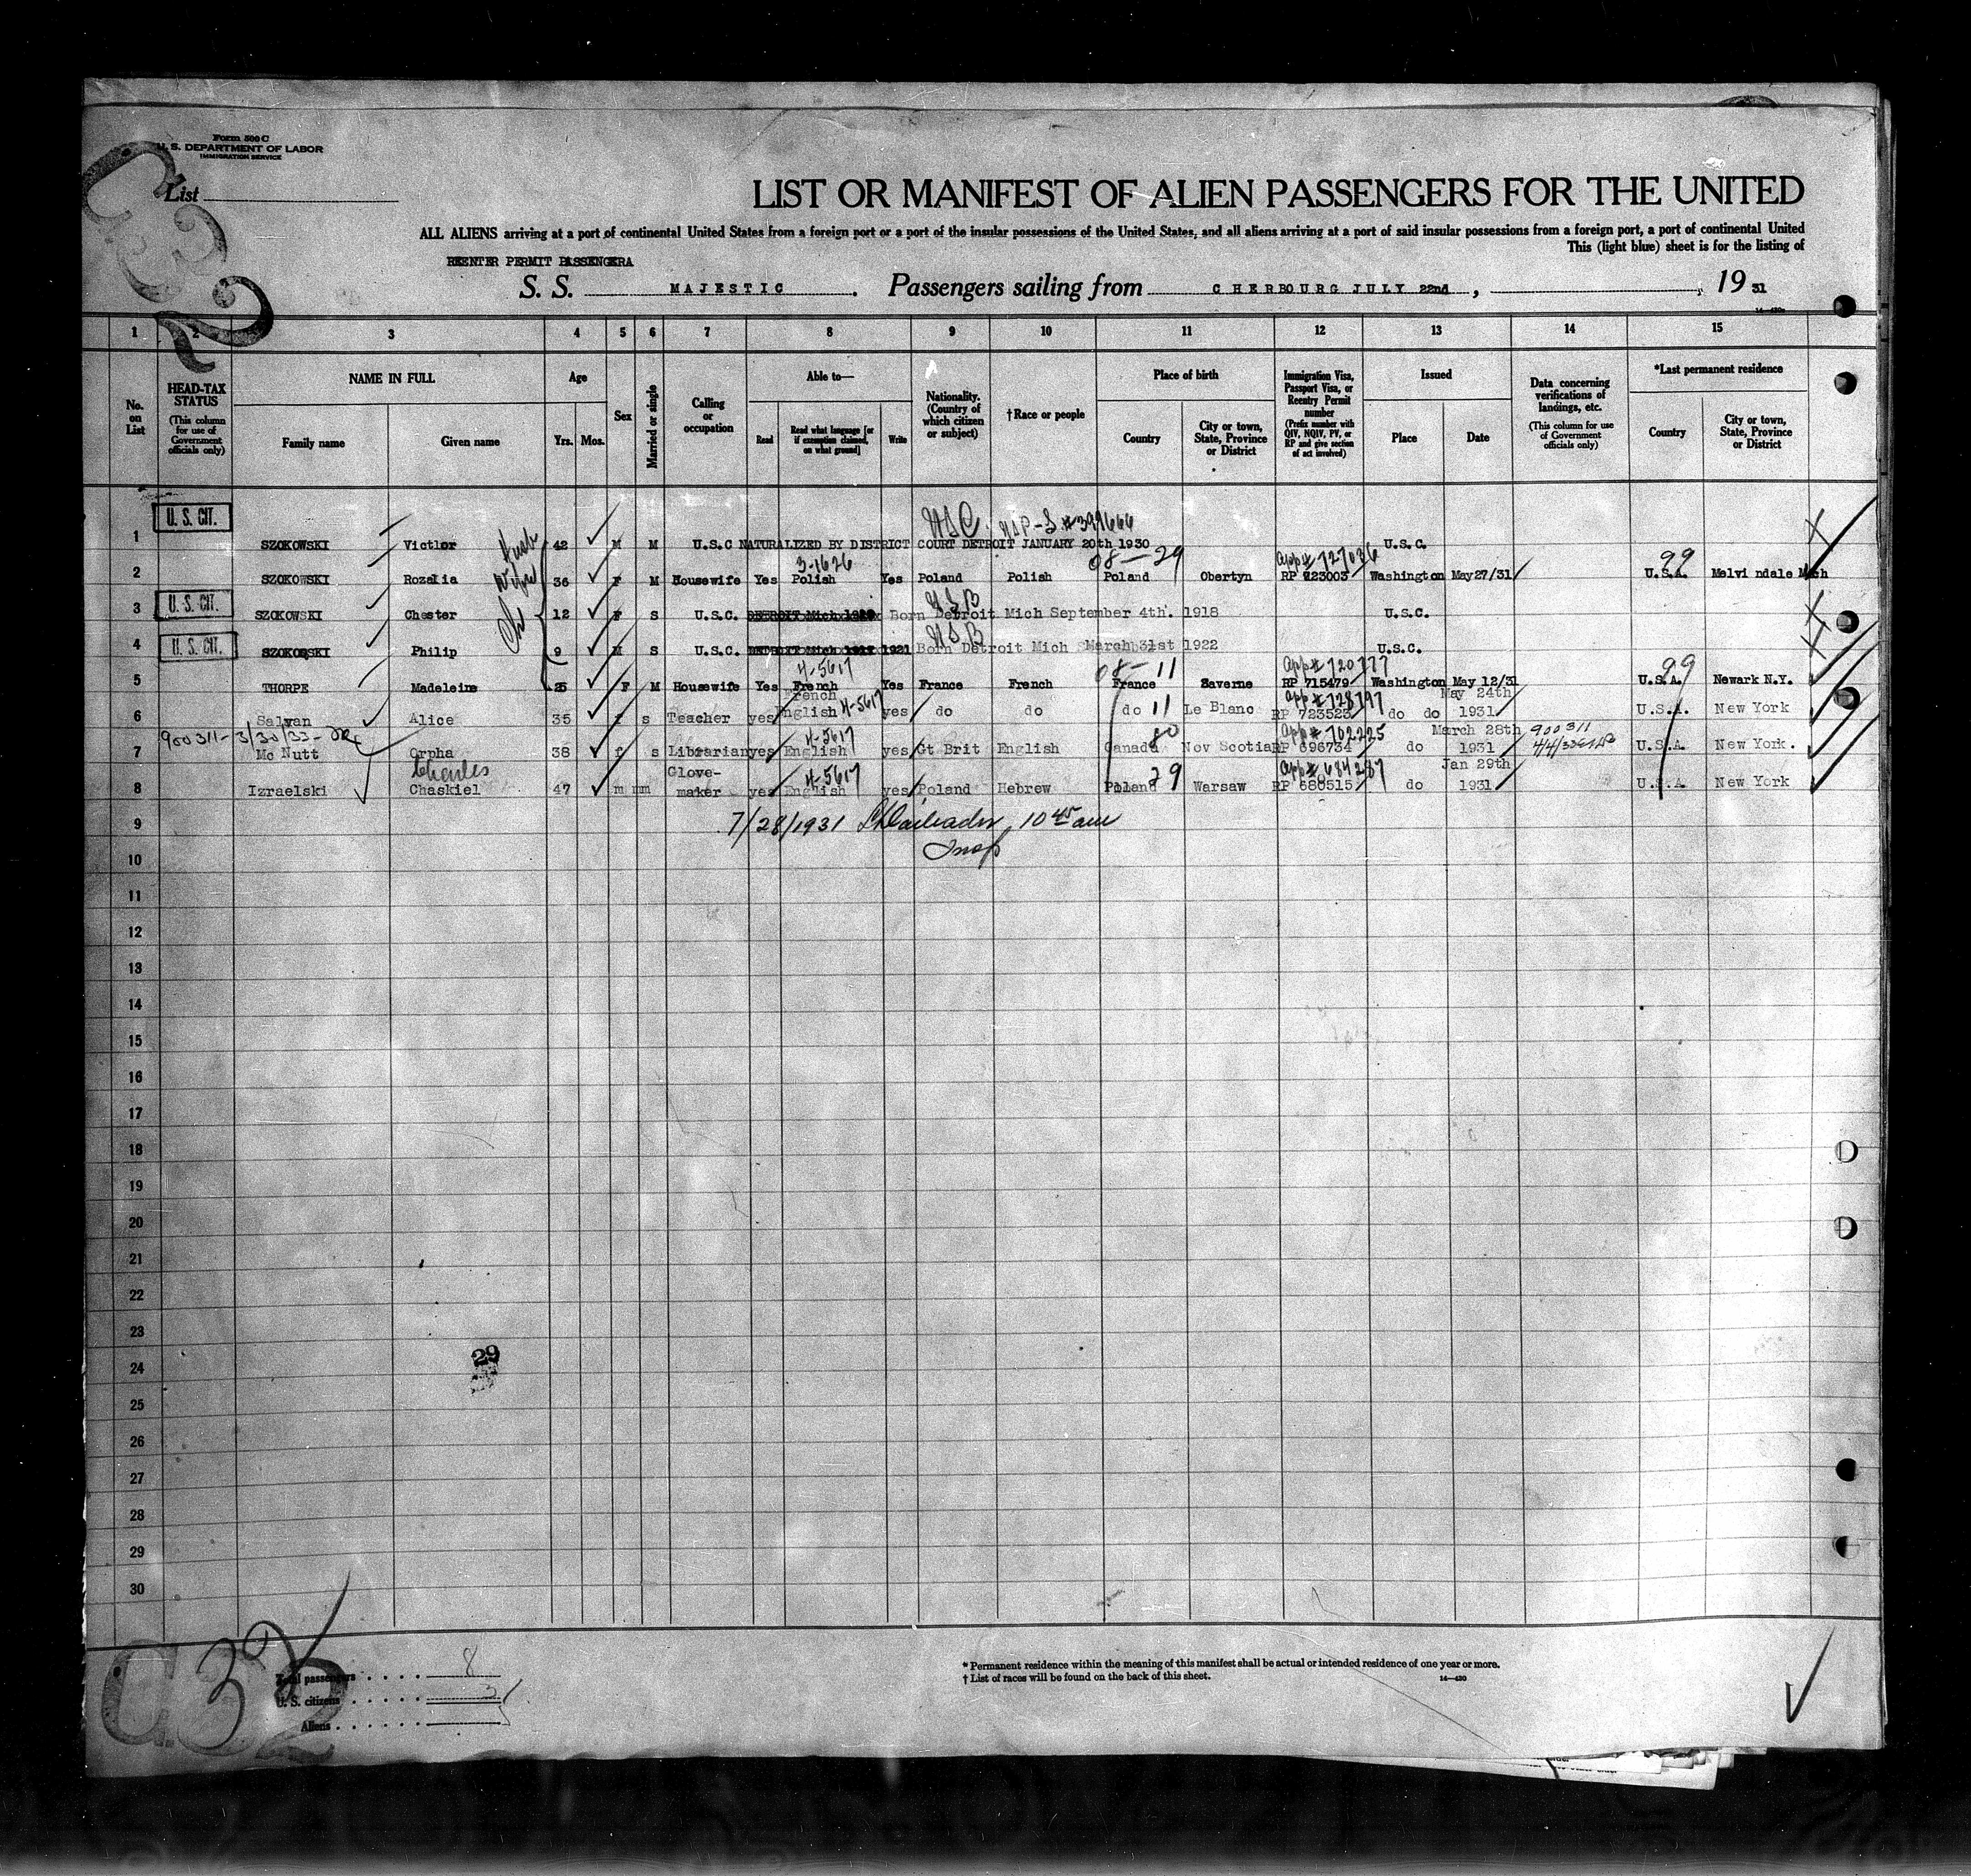 Form 500 C
U. S. DEPARTMENT OF LABOR
IMMIGRATION SERVICE
List
LIST OR MANIFEST OF ALIEN PASSENGERS FOR THE UNITED
ALL ALIENS arriving at a port of continental United States from a foreign port or a port of the insular possessions of the United States, and all aliens arriving at a port of said insular possessions from a foreign port, a port of continental United
This (light blue) sheet is for the listing of
REENTER PERMIT PASSENGERA
S. S. MAJESTIC. Passengers sailing from CHERBOURG JULY 22nd, , 19 31
1 2 3 4 5 6 7 8 9 10 11 12 13 14 15
No. on List
HEAD-TAX STATUS (This column for use of Government officials only)
NAME IN FULL
Family name Given name
Age
Yrs. Mos.
Sex
Married or single
Calling or occupation
Able to—
Read Read what language [or if exemption claimed, on what ground] Write
Nationality. (Country of which citizen or subject)
†Race or people
Place of birth
Country City or town, State, Province or District
Immigration Visa, Passport Visa, or Reentry Permit number (Prefix number with QIV, NQIV, PV, or RP and give section of act involved)
Issued
Place Date
Data concerning verifications of landings, etc. (This column for use of Government officials only)
*Last permanent residence
Country City or town, State, Province or District
U. S. CIT.
USC. USP-S #399666
1 SZOKOWSKI Victlor Husb 42 M M U.S.C NATURALIZED BY DISTRICT COURT DETROIT JANUARY 20th 1930 U.S.C.
3-1626 08-29 App# 727036 99
2 SZOKOWSKI Rozalia Wife 36 F M Housewife Yes Polish Yes Poland Polish Poland Obertyn RP 723003 Washington May27/31 U.S.A. Melvi ndale Mich
U. S. CIT.
USB
3 SZOKOWSKI Chester 12 F S U.S.C. Born Detroit Mich September 4th. 1918 U.S.C.
U. S. CIT.
USB
4 SZOKOWSKI Philip 9 M S U.S.C. 1921 Born Detroit Mich March 31st 1922 U.S.C.
4-5617 08-11 App# 720777 99
5 THORPE Madeleine 25 F M Housewife Yes French Yes France French France Saverne RP 715479 Washington May 12/31 U.S.A. Newark N.Y.
French 4-5617 App# 728797 May 24th
6 Salvan Alice 35 f s Teacher yes English yes do do do 11 Le Blanc RP 723523 do do 1931 U.S.A. New York
900311-3/30/33- 4-5617 80 App# 702225 March 28th 900311
7 Mc Nutt Orpha 38 f s Librarian yes English yes Gt Brit English Canada Nov Scotia RP 696734 do 1931 U.S.A New York.
Charles Glove- 4-5617 29 App# 684287 Jan 29th
8 Izraelski Chaskiel 47 m m maker yes English yes Poland Hebrew Poland Warsaw RP 680515 do 1931 U.S.A New York
9 7/28/1931 10 45 am
Insp
10
11
12
13
14
15
16
17
18
19
20
21
22
23
24 29
25
26
27
28
29
30
Total passengers 8
U. S. citizens 3
Aliens
* Permanent residence within the meaning of this manifest shall be actual or intended residence of one year or more.
† List of races will be found on the back of this sheet.
14—430
32